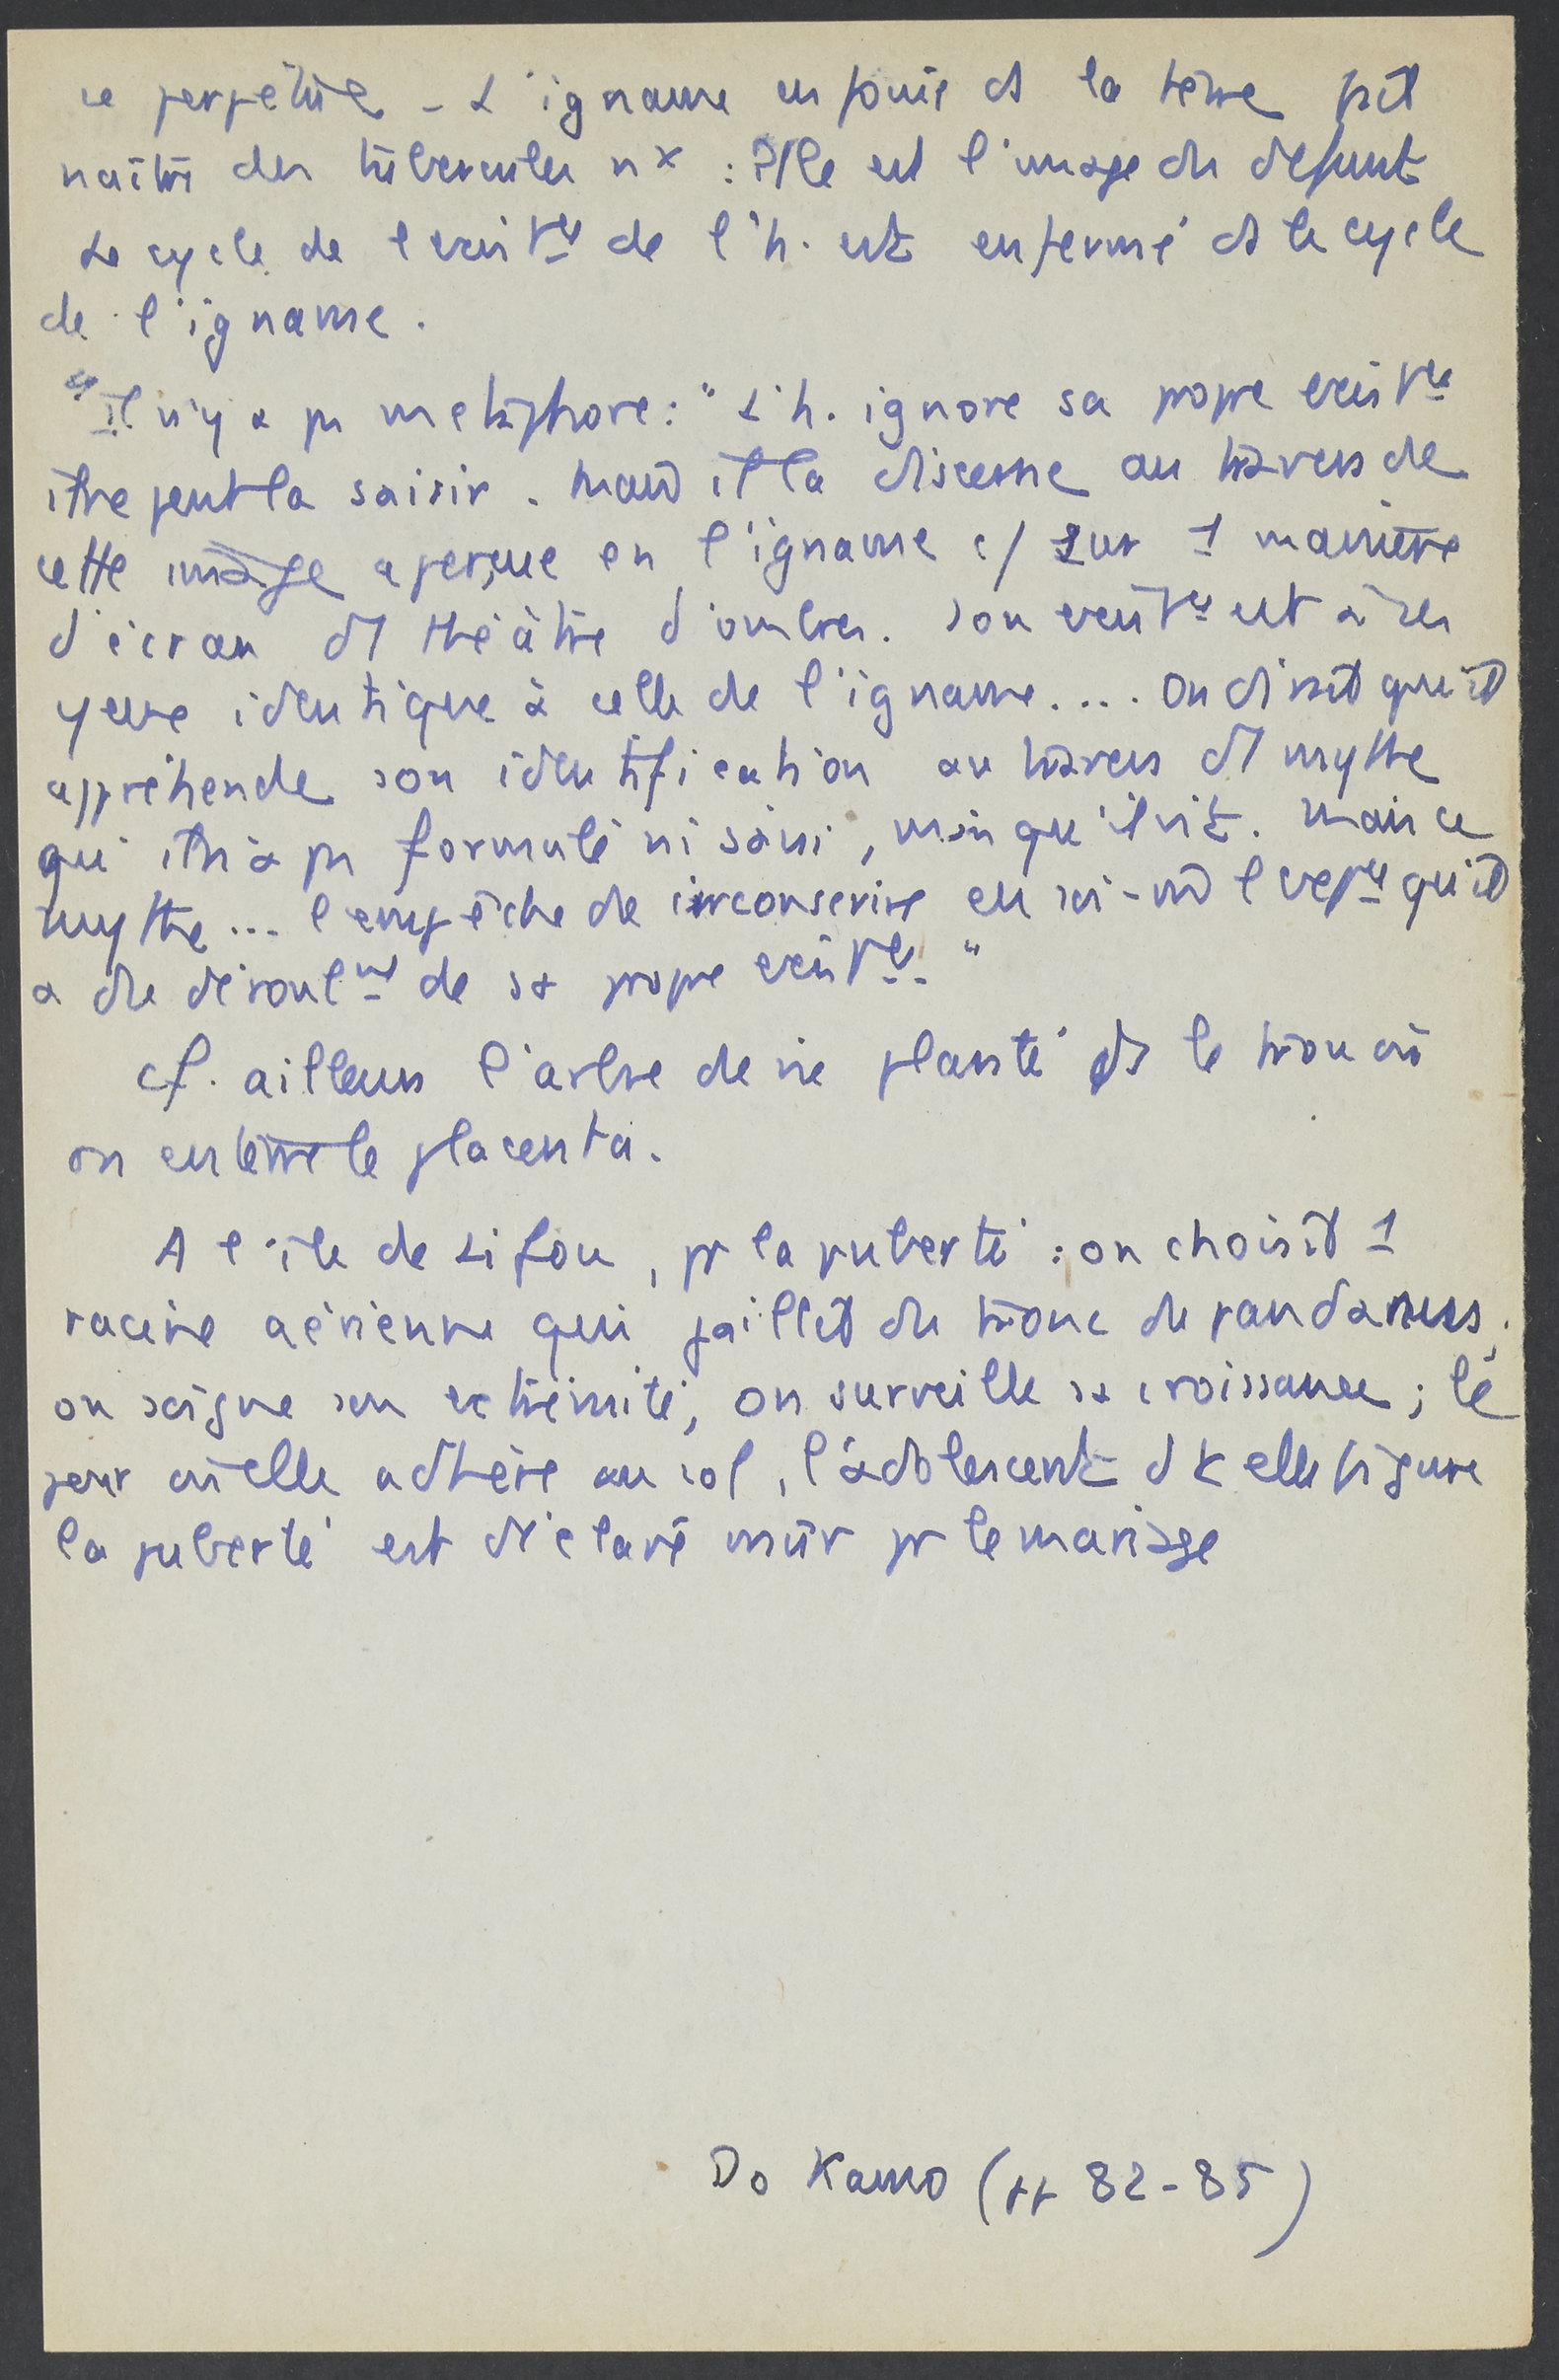 se perpétue - L'igname enfouie ds la terre fait
naître des tubercules nx : Elle est l'image du défunt
Le cycle de l'exist^ce de l'h. est enfermé ds le cycle
de l'igname.
"Il n'y a ps métaphore : "L'h. ignore sa propre exist^ce
il ne peut la saisir. Mais il la discerne au travers de
cette image aperçue en l'igname c/ sur 1 manière
d'écran du théâtre d'ombres. Son exist^ce est à ses
yeux identique à celle de l'igname.... On dirait qu'il
appréhende son identification au travers du mythe
qu'il n'a ps formulé ni saisi, mais qu'il vit. Mais ce
mythe... l'empêche de circonscrire en soi-m̂ l'exp^ce qu'il
a du déroul^nt de sa propre exist^ce."
Cf. ailleurs l'arbre de vie planté ds le trou où
on enterre le placenta.
A l'île de Lifou, pr la puberté : on choisit 1
racine aérienne qui jaillit du tronc du pandanus,
on soigne son extrémité, on surveille sa croissance ; le
jour où elle adhère au sol, l'adolescent dt elle figure
la puberté est déclaré mûr pr le mariage
Do Kamo (pp 82-85)